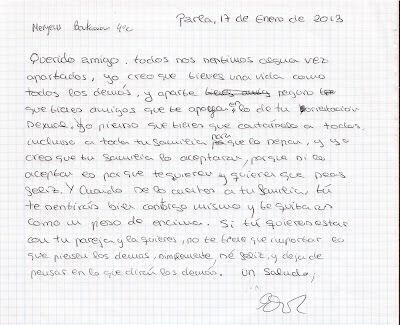 Parla, 17 de Enero de 2013
4ºc
Querido amigo, todos nos sentimos alguna vez
apartados, yo creo que tienes una vida como
todos los demás, y aparte tienes amig seguro
que tienes amigos que te apoyan en lo de tu orientación
sexual. Yo pienso que tienes que contárselo a todos,
incluso a toda tu familia para que lo sepan, y yo
creo que tu familia lo aceptara, porque si lo
aceptar es porque te quieren y quieren que seas
feliz. Y cuando se lo cuentes a tu familia, tú
te sentirás bien contigo mismo y te quitaras
como un peso de encima. Si tú quieres estar
con tu pareja y la quieres, no te tiene que importar lo
que piensen los demas, simplemente, sé feliz, y deja de
pensar en lo que dirán los demás. Un saludo,